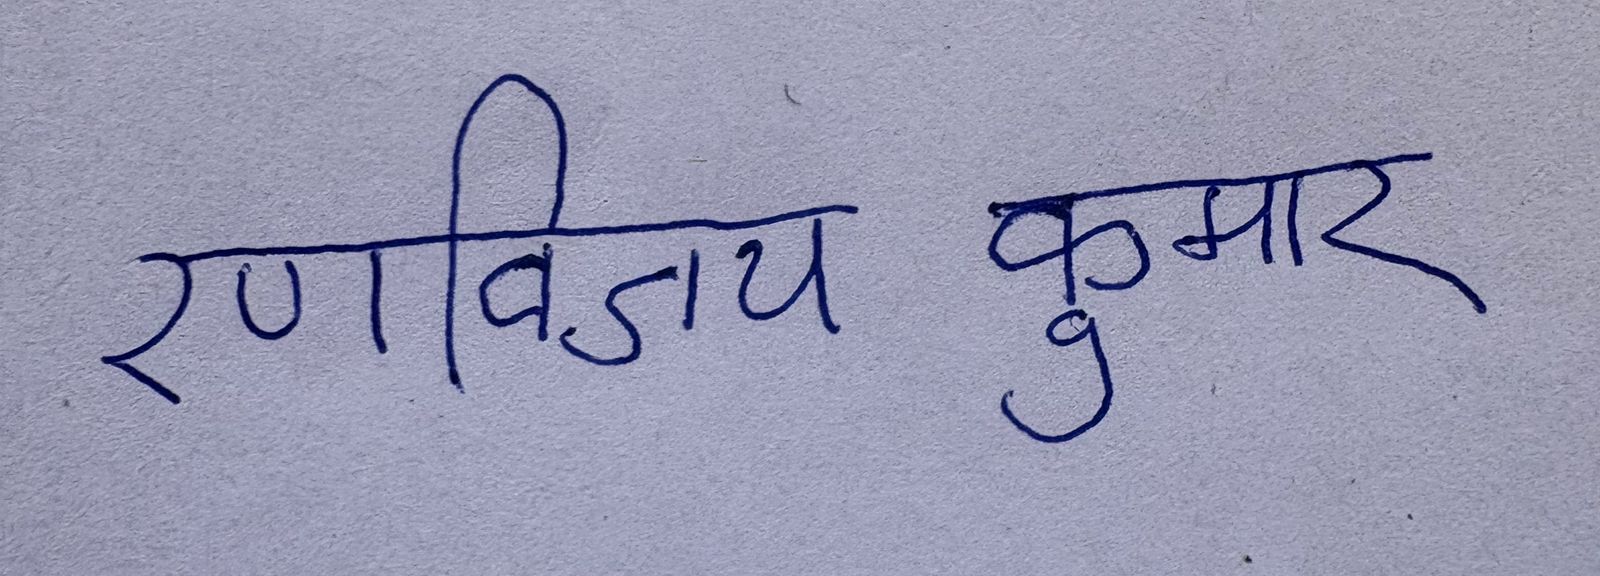 रणविजय कुमार